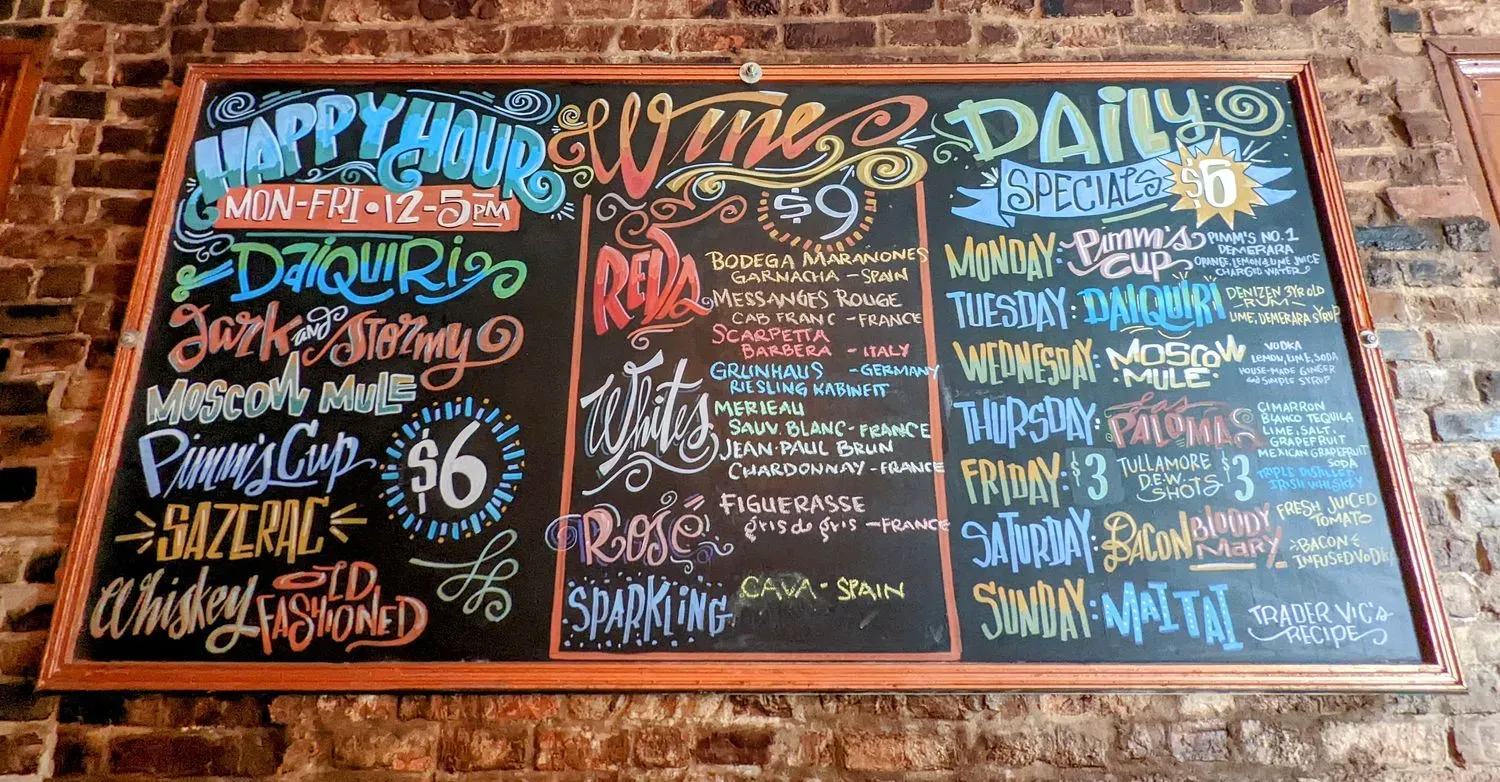 HAPPY HOUR
MON-FRI • 12-5PM
DAIQUIRI
Dark and Stormy
MOSCOW MULE
Pimm's Cup
$6
SAZERAC
Whiskey OLD FASHIONED
Wine
$9
REDS
BODEGA MARANONES
GARNACHA - SPAIN
MESSANGES ROUGE
CAB FRANC - FRANCE
SCARPETTA
BARBERA - ITALY
Whites
GRUNHAUS - GERMANY
RIESLING KABINETT
MERIEAU
SAUV. BLANC - FRANCE
JEAN-PAUL BRUN
CHARDONNAY - FRANCE
ROSÉ
FIGUERASSE
gris de gris - FRANCE
SPARKLING
CAVA - SPAIN
DAILY
SPECIALS $6
MONDAY: Pimm's CUP
PIMM'S NO. 1
DEMERARA
ORANGE, LEMON & LIME JUICE
CHARGED WATER
TUESDAY: DAIQUIRI
DENIZEN 3YR OLD
RUM
LIME, DEMERARA SYRUP
WEDNESDAY: MOSCOW MULE
VODKA
LEMON, LIME, SODA
HOUSE-MADE GINGER
and SIMPLE SYRUP
THURSDAY: Las PALOMAS
CIMARRON
BLANCO TEQUILA
LIME, SALT,
GRAPEFRUIT
MEXICAN GRAPEFRUIT
SODA
FRIDAY: $3 TULLAMORE D.E.W. SHOTS $3
TRIPLE DISTILLED
IRISH WHISKEY
SATURDAY: BACON BLOODY MARY
FRESH JUICED
TOMATO
BACON
INFUSED VODKA
SUNDAY: MAI TAI
TRADER VIC'S
RECIPE